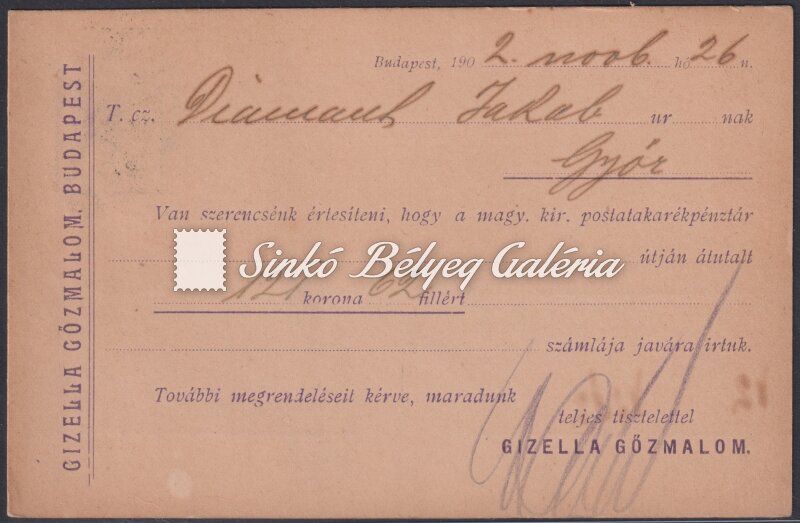 GIZELLA GŐZMALOM, BUDAPEST
Budapest, 1902. novb. hó 26 n.
T. cz. Diamant Jakab ur nak
Győr
Van szerencsénk értesíteni, hogy a magy. kir. postatakarékpénztár
Sinkó Bélyeg Galéria
útján átutalt
121 korona 62 fillért
számlája javára irtuk.
További megrendeléseit kérve, maradunk
teljes tisztelettel
GIZELLA GŐZMALOM.